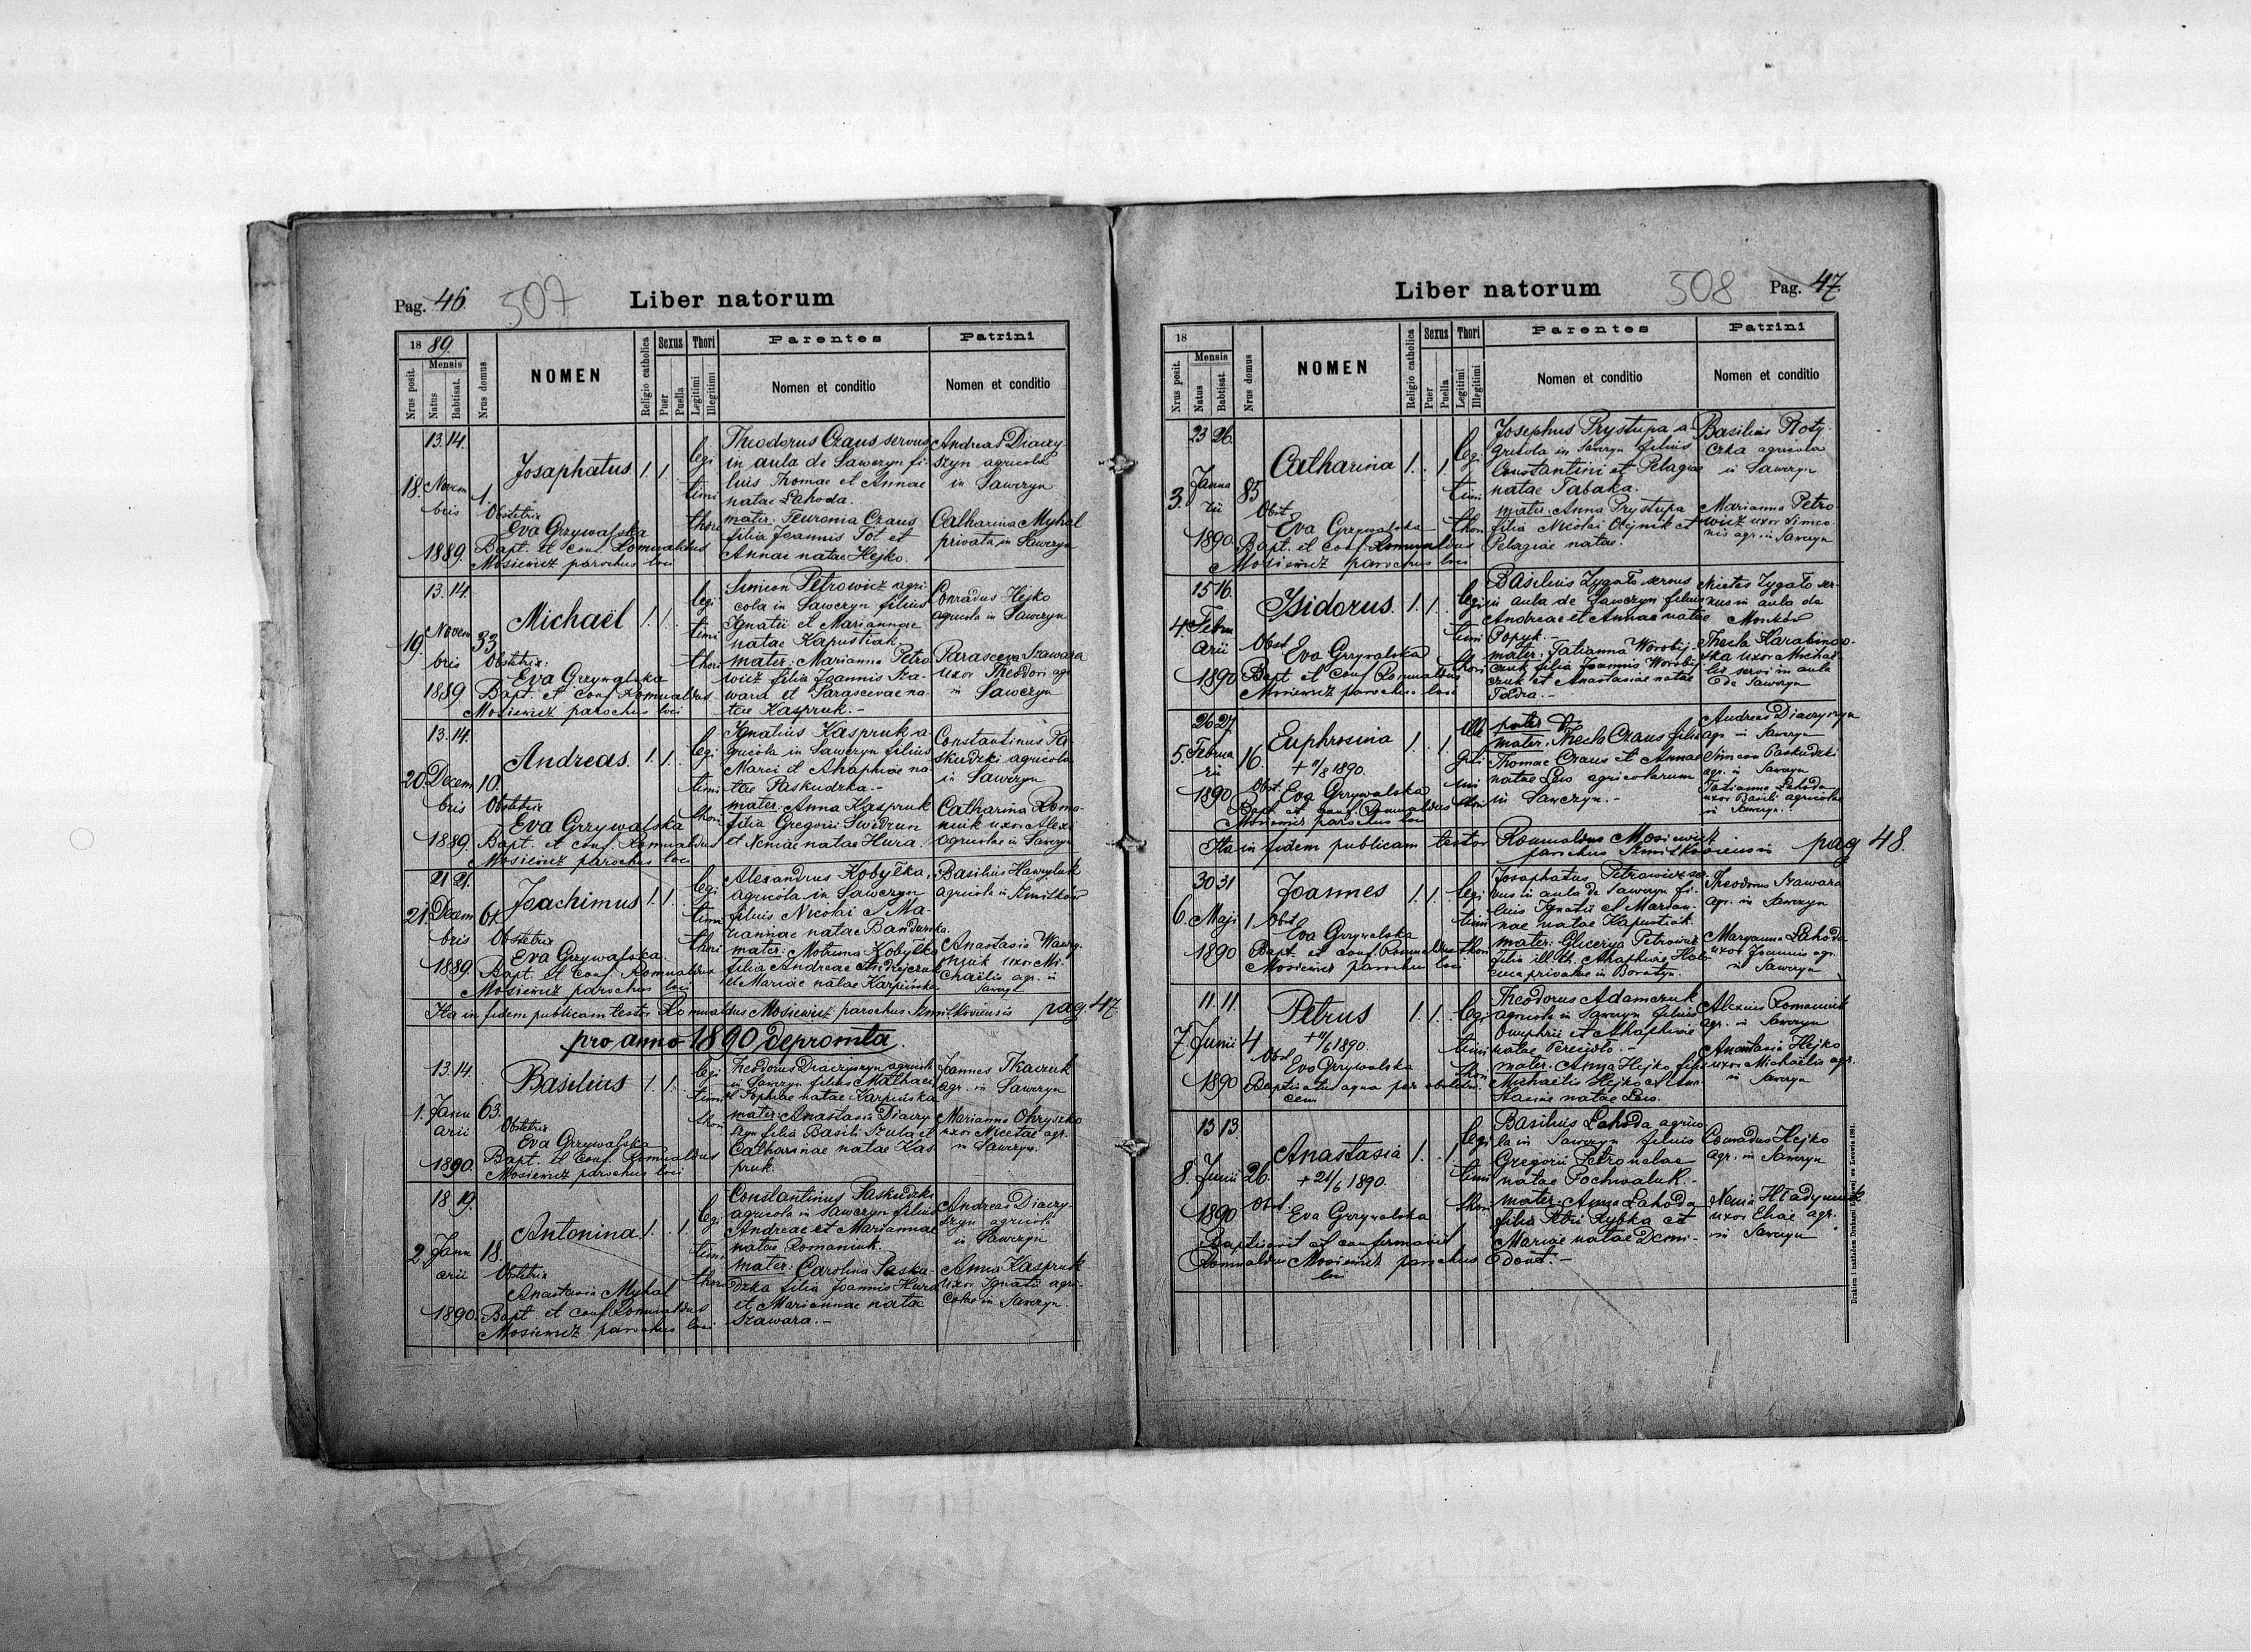 Pag. 46. 507 Liber natorum
1889.
Nrus posit.
Mensis
Natus
Babtisat.
Nrus domus
NOMEN
Religio catholica
Sexus
Puer
Puella
Thori
Legitimi
Illegitimi
Parentes
Nomen et conditio
Patrini
Nomen et conditio
18. 13. 14. Novem
bris
1889.
1.
Josaphatus 1. 1.
Obstetrix
Eva Grzywalska
Bapt. et conf. Romualdus
Mosiewicz parochus loci
legi
timi
thori
Theodorus Czaus servus
in aula de Sawczyn fi-
lius Thomae et Annae
natae Lahoda.
mater: Feuronia Czaus
filia Joannis Tol et
Annae natae Hejko.
Andreas Diaczy-
szyn agricola
in Sawczyn
Catharina Myhal
privata in Sawczyn
19. 13. 14. Novem
bris
1889
33.
Michaël 1. 1.
Obstetrix:
Eva Grzywalska
Bapt. et conf. Romualdus
Mosiewicz parochus loci
legi
timi
thori
Simeon Petrowicz agri-
cola in Sawczyn filius
Ignatii et Mariannae
natae Kapustiak.
mater: Marianna Petro
wicz filia Joannis Sza-
wara et Parascevae na-
tae Kaspruk.-
Conradus Hejko
agricola in Sawczyn
Parasceva Szawara
uxor Theodori agr.
in Sawczyn
20. 13. 14. Decem
bris
1889.
10.
Andreas. 1. 1.
Obstetrix
Eva Grzywalska
Bapt. et conf. Romualdus
Mosiewicz parochus loci
legi
timi
thori
Ignatius Kaspruk a-
gricola in Sawczyn filius
Marci et Ahaphiae na-
tae Paskudzka.-
mater: Anna Kaspruk
filia Gregorii Swidrun
et Neniae natae Hura.
Constantinus Pa-
skudzki agricola
in Sawczyn
Catharina Roma-
niuk uxor Alexi
agricolae in Sawczyn
21. 21. 21. Decem
bris
1889.
61.
Joachimus 1. 1.
Obstetrix
Eva Grzywalska.
Bapt. et conf. Romualdus
Mosiewicz parochus loci
legi
timi
thori
Alexandrus Kobyłka,
agricola in Sawczyn
filius Nicolai et Ma-
riannae natae Bandurska.
mater: Motruna Kobyłka
filia Andreae Andrejczuk
et Mariae natae Karpińska
Basilius Hawrylak
agricola in Szmitków
Anastasia Wawry-
niuk uxor Mi-
chaëlis agr. in
Sawczyn
Ita in fidem publicam testor Romualdus Mosiewicz parochus Szmitkoviensis pag. 47
pro anno 1890 depromta.
1. 13. 14. Janu
arii
1890.
63.
Basilius 1. 1.
Obstetrix
Eva Grzywalska
Bapt. et conf. Romualdus
Mosiewicz parochus loci
legi
timi
thori
Theodorus Diaczyszyn agricola
in Sawczyn filius Mathaei
et Sophiae natae Karpińska
mater: Anastasia Diaczy-
szyn filia Basili Szula et
Catharinae natae Kas
pruk.
Joannes Tkaczuk
agr. in Sawczyn
Marianna Ohryszko
uxor Nicetae agr.
in Sawczyn.
2. 18. 19. Janu
arii
1890.
18.
Antonina 1. 1.
Obstetrix
Anastasia Myhal
Bapt et conf. Romualdus
Mosiewicz parochus loci
legi
timi
thori
Constantinus Paskudzki
agricola in Sawczyn filius
Andreae et Mariannae
natae Romaniuk.
mater: Carolina Pasku-
dzka filia Joannis Hura
et Mariannae natae
Szawara.-
Andreas Diaczy-
szyn agricola
in Sawczyn
Anna Kaspruk
uxor Ignatii agri-
colae in Sawczyn.
Liber natorum 508 Pag. 47.
18
Nrus posit.
Mensis
Natus
Babtisat.
Nrus domus
NOMEN
Religio catholica
Sexus
Puer
Puella
Thori
Legitimi
Illegitimi
Parentes
Nomen et conditio
Patrini
Nomen et conditio
3. 23 26. Janua
rii
1890.
85
Catharina 1. 1.
Obst.
Eva Grzywalska
Bapt. et conf. Romualdus
Mosiewicz parochus loci
legi
timi
thori
Josephus Prystupa a-
gricola in Sawczyn filius
Constantini et Pelagiae
natae Tabaka.
mater: Anna Prystupa
filia Nicolai Olejnik et
Pelagiae natae.
Basilius Roty-
czka agricola
in Sawczyn
Marianna Petro
wicz uxor Simeo-
nis agr. in Sawczyn
4. 15 16. Febru
arii
1890
Isidorus. 1. 1.
Obst
Eva Grzywalska
Bapt et conf Romualdus
Mosiewicz parochus loci
legi
timi
thori
Basilius Zygało servus
in aula de Sawczyn filius
Andreae et Annae natae
Popyk.-
mater: Tatianna Worobij-
czuk filia Joannis Worobij
czuk et Anastasiae natae
Nicetas Zygało ser-
vus in aula de
Thecla Karabinow-
ska uxor Michaë-
lis servi in aula
de Sawczyn
5. 26 27. Februa
rii
1890
16.
Euphrosina 1. 1.
+ 11/8 1890.
Obst. Eva Grzywalska
Bapt. et conf. Romualdus
Mosiewicz parochus loci
ille
giti
mi
thori
pater
mater: Thecla Czaus filia
Thomae Czaus et Annae
natae Leus agricolarum
in Sawczyn.-
Andreas Diaczyszyn
agr. in Sawczyn
Simeon Paskudzki
agr. in Sawczyn
Tatianna Lahoda
uxor Basili agricolae
in Sawczyn.
Ita in fidem publicam testor Romualdus Mosiewicz
parochus Szmitkoviensis pag 48.
6. 30 31 Maji
1890
1.
Joannes 1. 1.
Obst
Eva Grzywalska
Bapt. et conf. Romualdus
Mosiewicz parochus loci
legi
timi
thori
Josaphatus Petrowicz ser
vus in aula de Sawczyn fi-
lius Ignatii et Marian-
nae natae Kapustiak.
mater: Glicerya Petrowicz
filia ill. th. Ahaphiae
privatae in Boratyn.
Theodorus Szawara
agr. in Sawczyn
Maryanna Lahoda
uxor Joannis agr.
in Sawczyn
7. 11. 11. Junii
1890
4
Petrus 1. 1.
1890.
Obst
Eva Grzywalska
Baptisatus aqua per obstetri-
cem
legi
timi
thori
Theodorus Adamczuk
agricola in Sawczyn filius
Onuphrii et Ahaphiae
natae
mater: Anna Hejko filia
Michaëlis Hejko et Ana-
stasiae natae Leus.
Alexius Romaniuk
agr. in Sawczyn
Anastasia Hejko
uxor Michaëlis agr.
in Sawczyn
8. 13 13 Junii
1890
26.
Anastasia 1. 1.
+ 21/6 1890.
Obst.
Eva Grzywalska
Baptisavit et confirmavit
Romualdus Mosiewicz parochus
loci
legi
timi
thori
Basilius Lahoda agrico
la in Sawczyn filius
Gregorii Petronelae
natae Pochwaluk.-
mater: Anna Lahoda
filia Petri Rybka et
Mariae natae Demi-
Conradus Hejko
agr. in Sawczyn
Nenia Hładyniuk
uxor Eliae agr.
in Sawczyn
Drukiem i nakładem Drukarni Ludowej we Lwowie 1891.